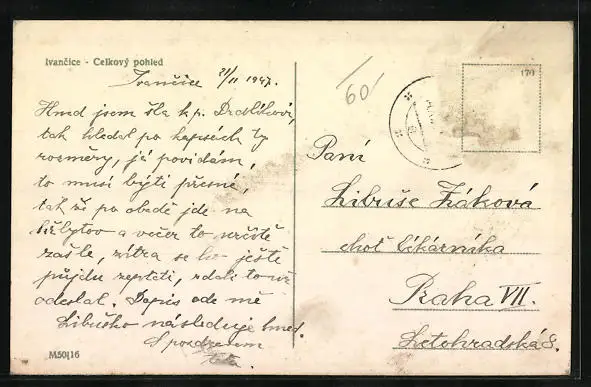 Ivančice - Celkový pohled
170
Ivančice 21/11 1947.
60
Hned jsem šla k p. Drdlíkovi,
tak hledal po kapsách ty
rozměry, já povídám,
to musí býti přesné,
takže po obědě jde na
a večer to určitě
zašle, zítra se ho ještě
půjdu zeptati, zdali to už
odeslal. Dopis ode mě
Libuško následuje hned.
S pozdravem
teta.
Paní
Libuše Žáková
choť lékárníka
Praha VII.
Letohradská 8.
M50|16